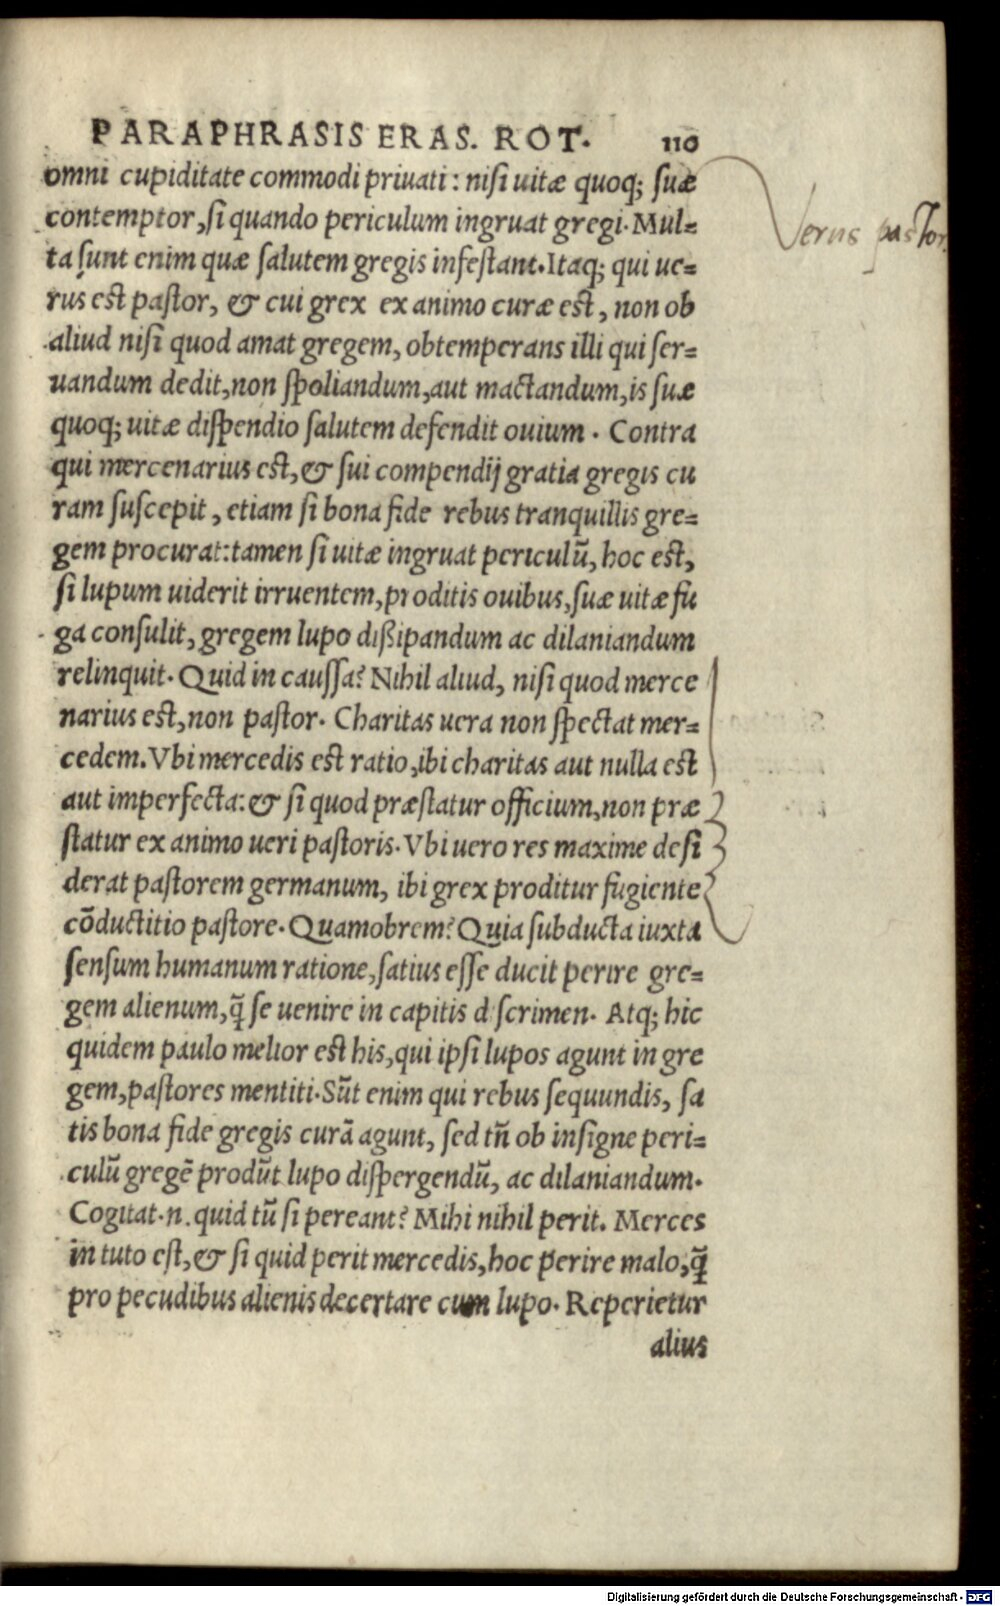 PARAPHRASIS ERAS. ROT. 110
omni cupiditate commodi priuati : nisi uitæ quoq; suæ
contemptor, si quando periculum ingruat gregi. Mul=
ta sunt enim quæ salutem gregis infestant. Itaq; qui ue=
rus est pastor, & cui grex ex animo curæ est, non ob
aliud nisi quod amat gregem, obtemperans illi qui ser=
uandum dedit, non spoliandum, aut mactandum, is suæ
quoq; uitæ dispendio salutem defendit ouium. Contra
qui mercenarius est, & sui compendij gratia gregis cu
ram suscepit, etiam si bona fide rebus tranquillis gre=
gem procurat: tamen si uitæ ingruat periculũ, hoc est,
si lupum uiderit irruentem, proditis ouibus, suæ uitæ fu
ga consulit, gregem lupo dißipandum ac dilaniandum
relinquit. Quid in caussa? Nihil aliud, nisi quod merce
narius est, non pastor. Charitas uera non spectat mer=
cedem. Vbi mercedis est ratio, ibi charitas aut nulla est
aut imperfecta: & si quod præstatur officium, non præ
statur ex animo ueri pastoris. Vbi uero res maxime desi
derat pastorem germanum, ibi grex proditur fugiente
cõductitio pastore. Quamobrem? Quia subducta iuxta
sensum humanum ratione, satius esse ducit perire gre=
gem alienum, q̃ se uenire in capitis d scrimen. Atq; hic
quidem paulo melior est his, qui ipsi lupos agunt in gre
gem, pastores mentiti. Sũt enim qui rebus sequundis, sa
tis bona fide gregis curã agunt, sed tñ ob insigne peri=
culũ gregẽ produ͂t lupo dispergendũ, ac dilaniandum.
Cogitat.n. quid tũ si pereant? Mihi nihil perit. Merces
in tuto est, & si quid perit mercedis, hoc perire malo, q̃
pro pecudibus alienis decertare cum lupo. Reperietur
alius
Verus pastor
Digitalisierung gefördert durch die Deutsche Forschungsgemeinschaft - DFG